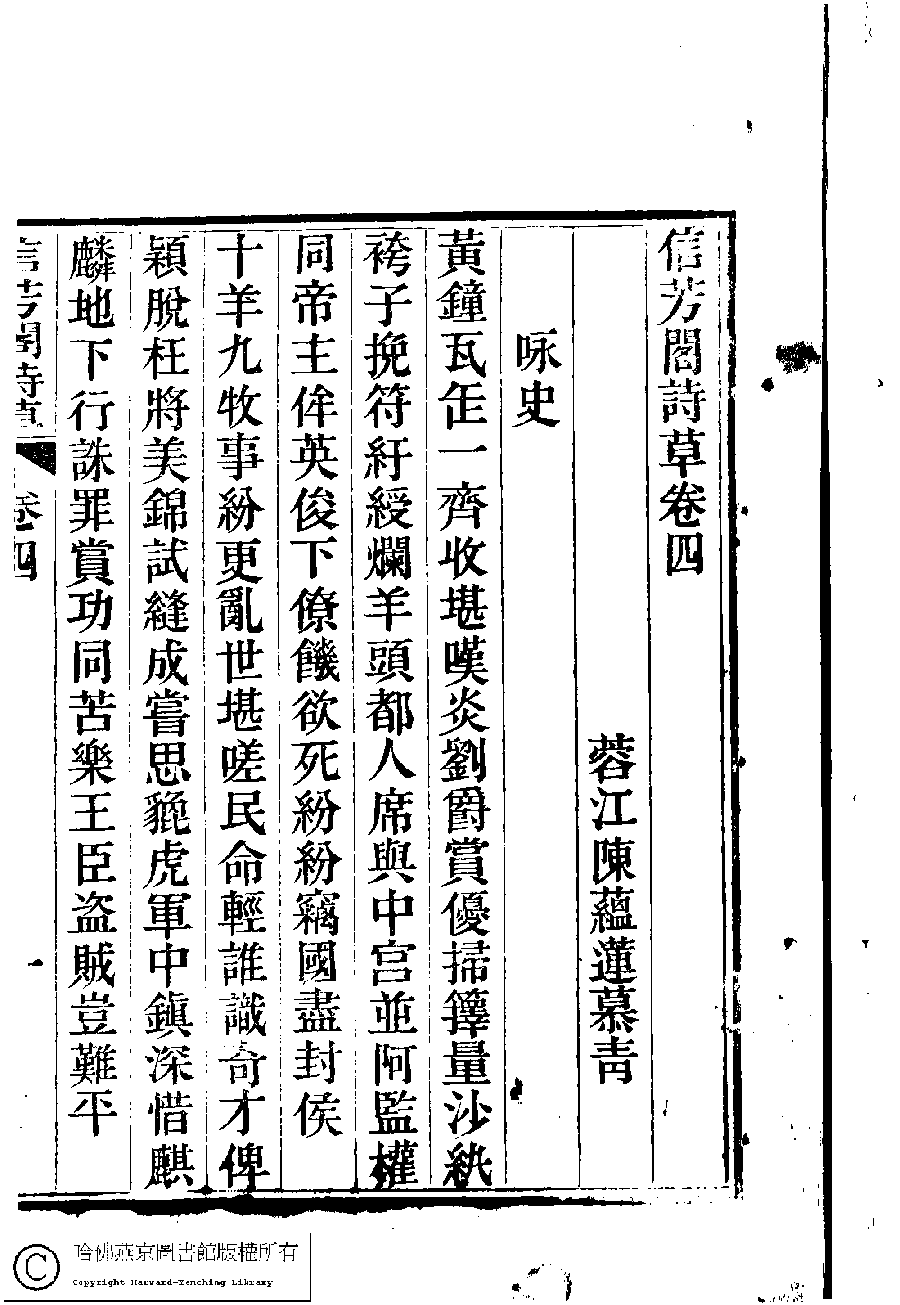 信芳閣詩草卷四
蓉江陳蘊蓮慕青
咏史
黃鐘瓦缶一齊收堪嘆炎劉爵賞優掃籜量沙紈
袴子挽符紆綬爛羊頭都人席與中宮並阿監權
同帝主侔英俊下僚饑欲死紛紛竊國盡封侯
十羊九牧事紛更亂世堪嗟民命輕誰識奇才俾
穎脫枉將美錦試縫成嘗思貔虎軍中鎮深惜麒
麟地下行誅罪賞功同苦樂王臣盜賊豈難平
信芳閣詩草 卷四
哈佛燕京圖書館版權所有
Copyright Harvard-Yenching Library